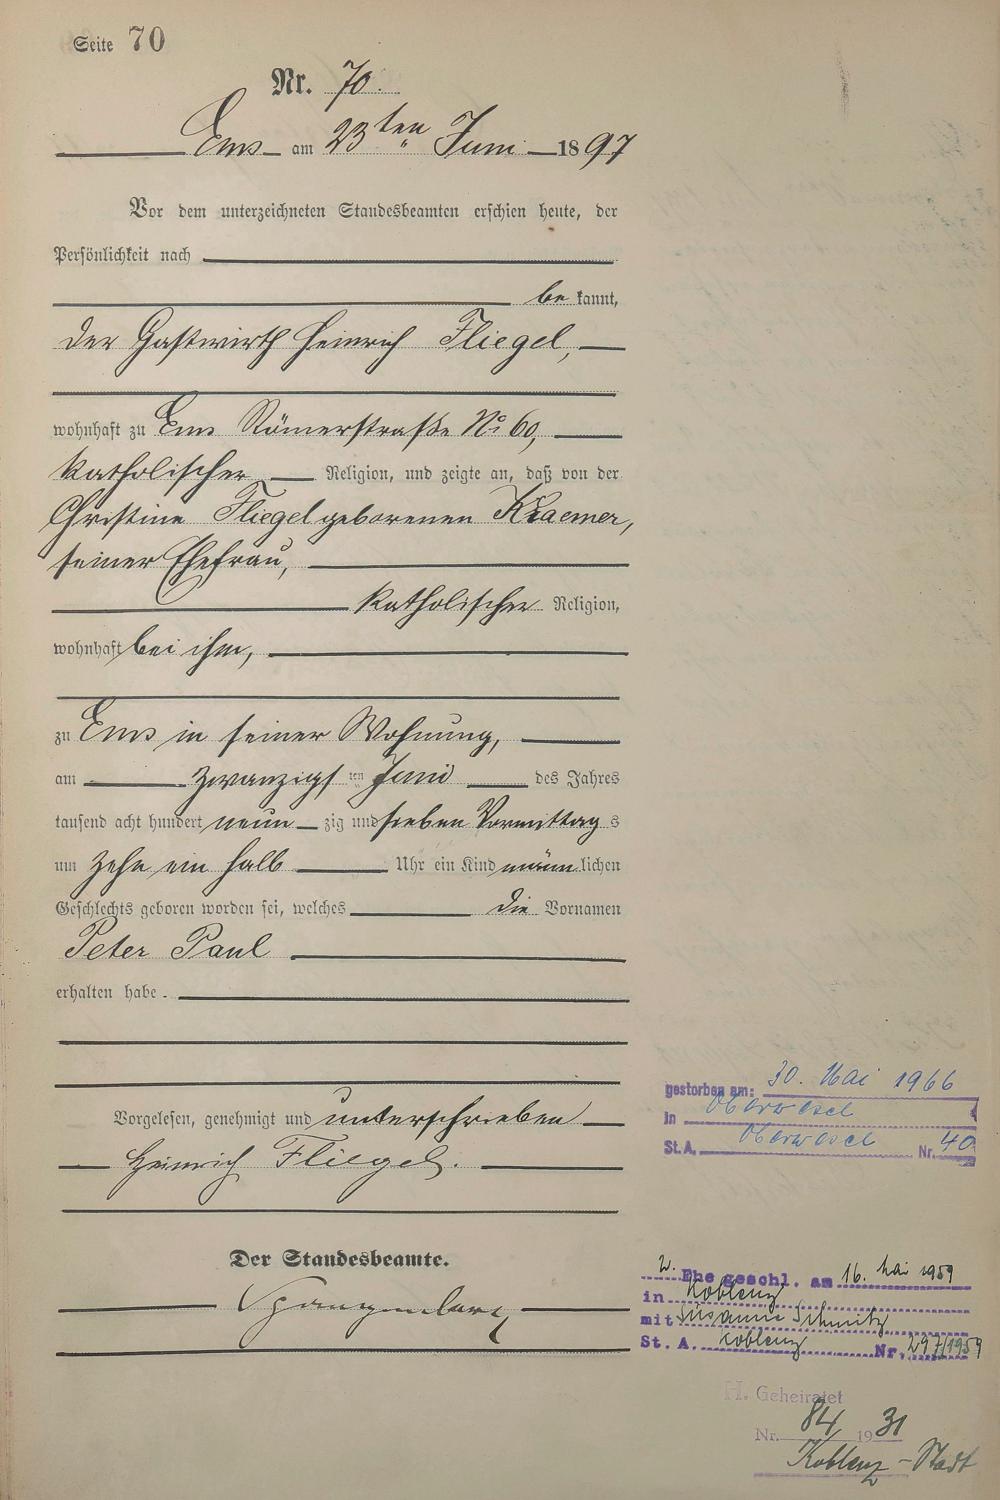 Seite 70
Nr. 70.
Ems am 23ten Juni 1897
Vor dem unterzeichneten Standesbeamten erschien heute, der
Persönlichkeit nach
be kannt,
der Gastwirth Heinrich Fliegel,
wohnhaft zu Ems Römerstraße No 60,
katholischer Religion, und zeigte an, daß von der
Christine Fliegel geborenen Kraemer,
seiner Ehefrau,
katholischer Religion,
wohnhaft bei ihm,
zu Ems in seiner Wohnung,
am zwanzigs ten Juni des Jahres
tausend acht hundert neun zig und sieben Vormittag s
um zehn ein halb Uhr ein Kind männ lichen
Geschlechts geboren worden sei, welches die Vornamen
Peter Paul
erhalten habe.
Vorgelesen, genehmigt und unterschrieben
Heinrich Fliegel.
Der Standesbeamte.
gestorben am: 30. Mai 1966
in Oberwesel
St.A. Oberwesel Nr. 40
2. Ehe geschl. am 16. Mai 1959
in Koblenz
mit Susanne Schmitz
St. A. Koblenz Nr. 297/1959
H. Geheiratet
Nr. 84 1931
Koblenz-Stadt